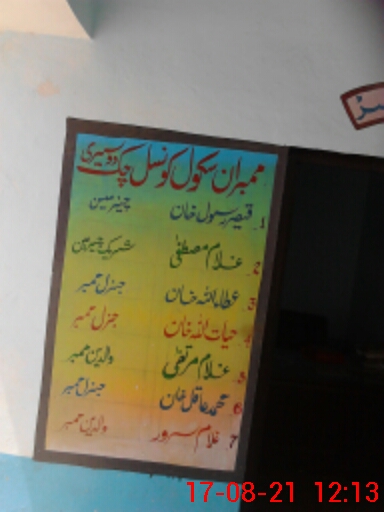 ممبران سکول کونسل چک دوسیری
1. قیصر رسول خان چیئرمین
2. غلام مصطفیٰ شریک چیئرمین
3. عطاءاللہ خان جنرل ممبر
4. حیات اللہ خان جنرل ممبر
5. غلام مرتضیٰ والدین ممبر
6. محمد عاقل خان جنرل ممبر
7. غلام سرور والدین ممبر
17-08-21 12:13